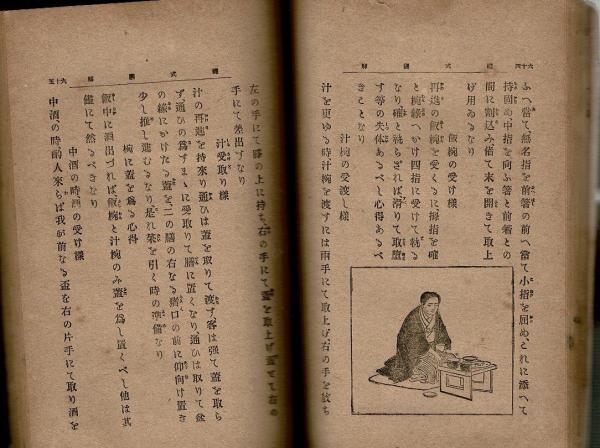 禮式圖解
六十四
ふへ當て無名指を前箸の前へ當て小指を屈め、これに添へて
持固め中指を向ふ箸と前箸との
間に割込み偖て末を開きて取上
げ用ゐるなり
飯椀の受け樣
再進の飯椀を受くるに拇指を確
と椀縁へかけ四指に受けて執る
なり確と執らざれば滑りて取墮
す等の失体あるべし心得あるべ
きことなり
汁椀の受渡し樣
汁を更ゆる時汁椀を渡すには兩手にて取上げ、右の手を放ち
禮式圖解
六十五
左の手にて膝の上に持ち、右の手にて蓋を取上げ
手にて差出すなり
汁受取り樣
汁の再進を持來り通ひは蓋を取りて渡す、客は强て蓋を取ら
ず、通ひの爲すまゝに受取りて膳に置くなり、通ひは取りて盆
の縁にかけたる蓋を二の膳の右なる
の前に仰向け置き
少し推し進むるなり是れ菜を引く時の準備なり
椀に蓋を爲る心得
飯中に酒出づれば飯椀と汁椀のみ蓋を爲し置くべし他は其
儘にて然るべきなり
中酒の時酒の受け樣
中酒の時酌人來らば我が前なる盃を右の片手にて取り酒を